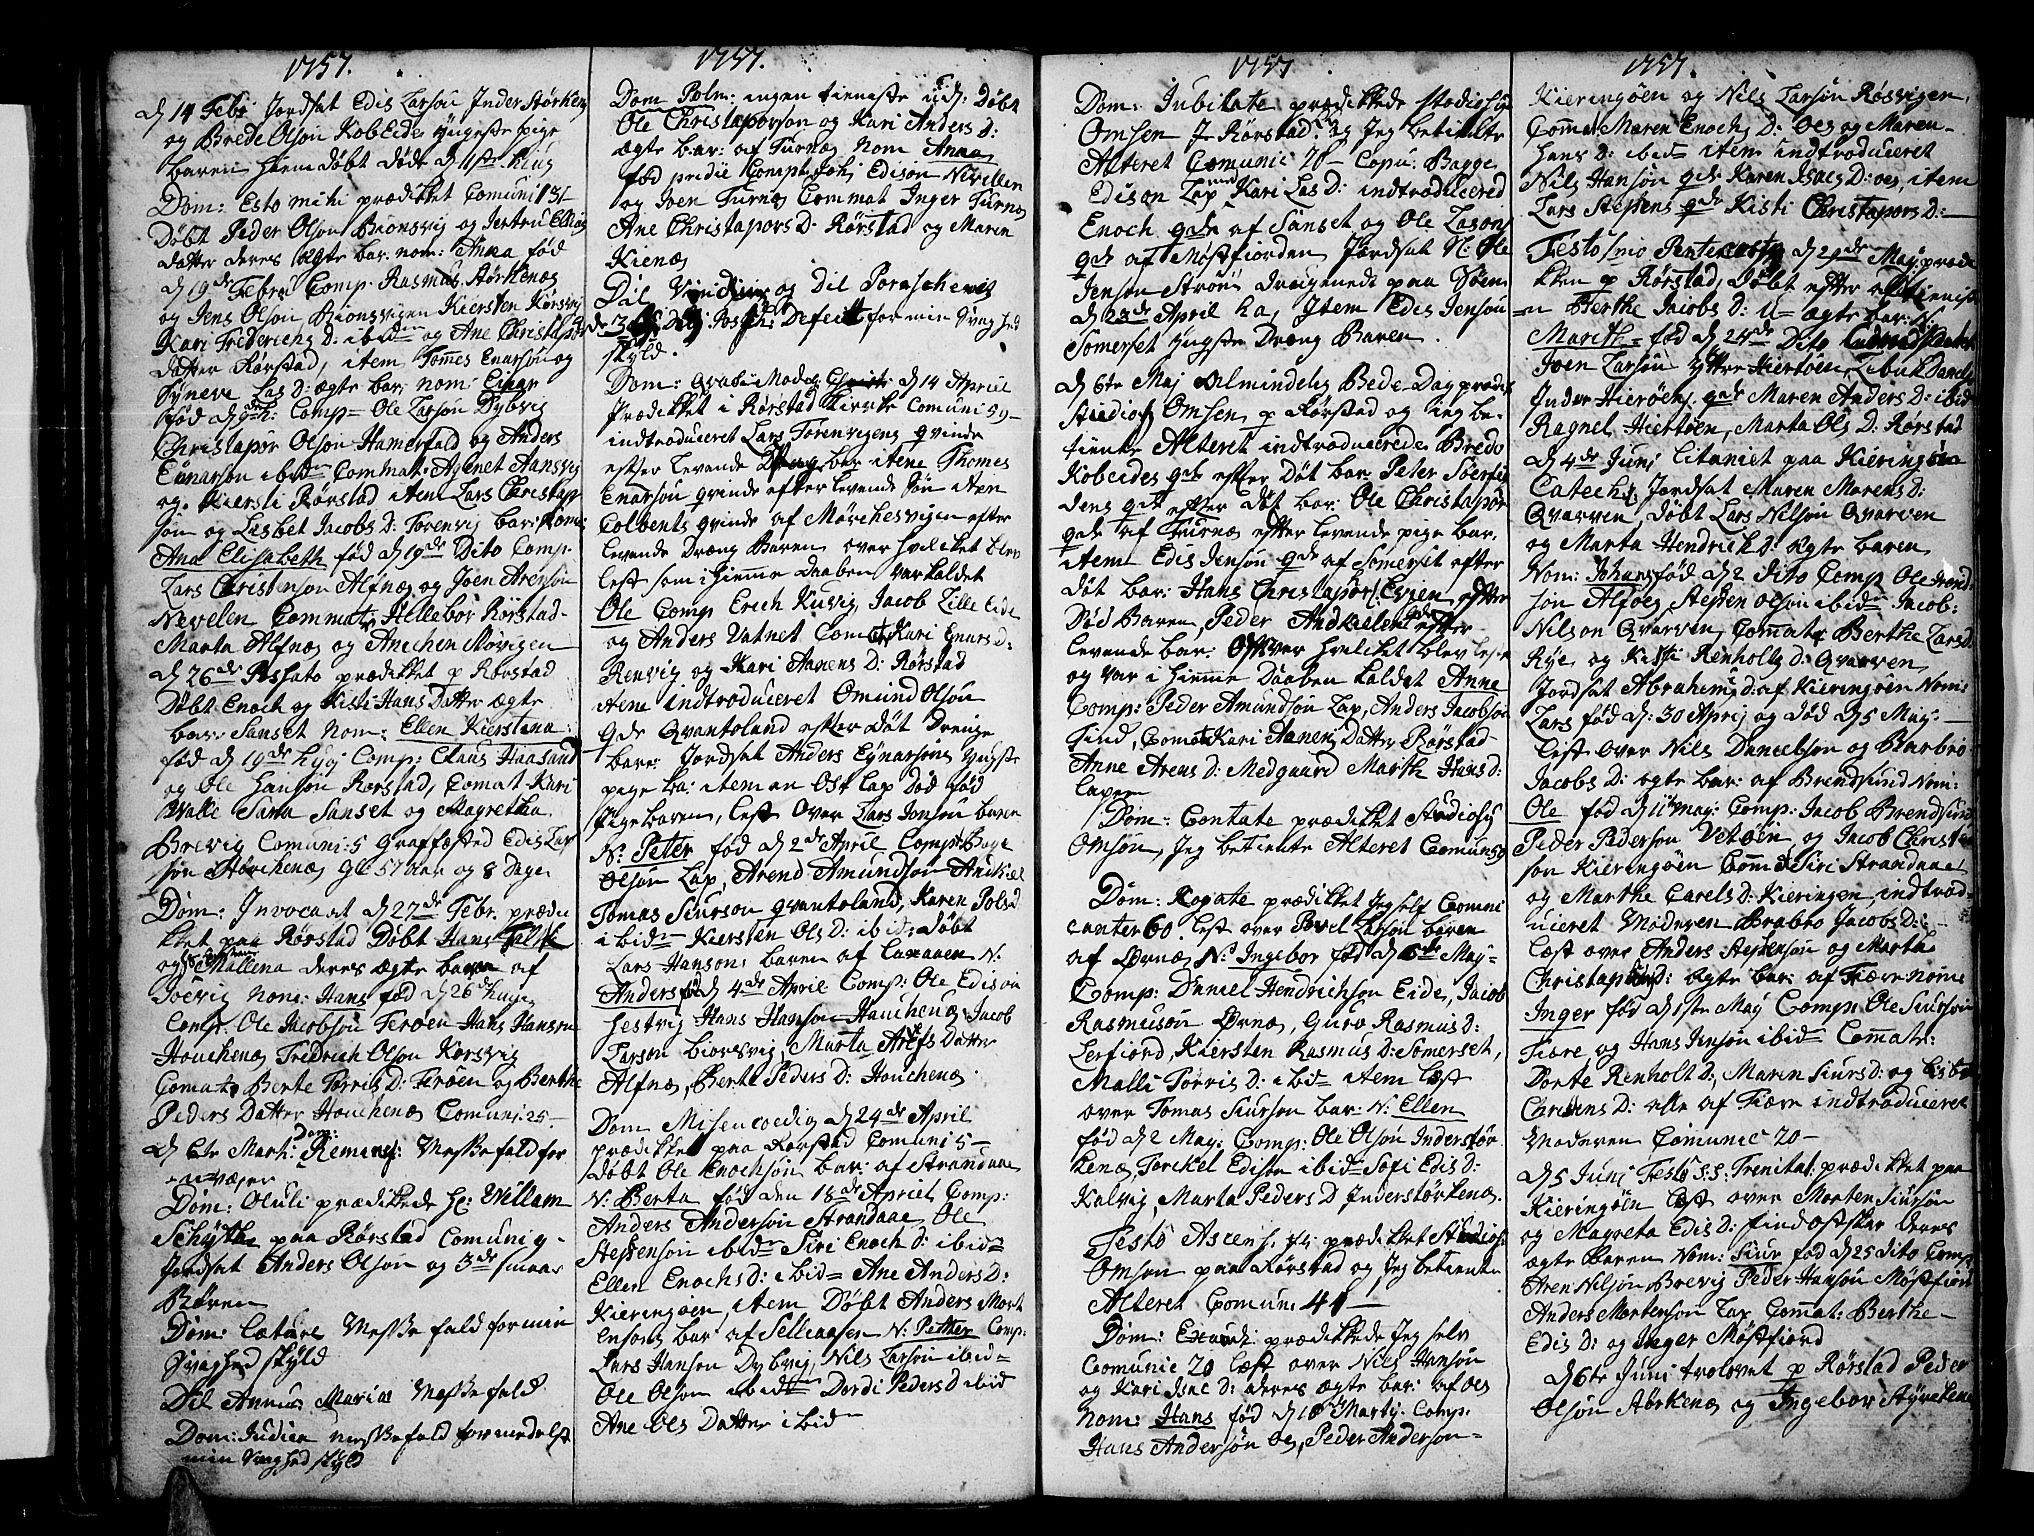 1757.
d 14 Febr Jordsat Edis Larson Inder Størkens
og Brede Olson Kobeides yngeste pige
baren hiem døbt døde d 1ste huis
Dom: Esto mihi prædikket Comuni 31
Døbt Peder Olson Bionsvig og Jertru Ellias
datter deres ægte bar. nom: Anna fød
d 19de Febr. Comp. Rasmus Størkenæs
og Jens Olson Bionsvigen Kiersten Korsvig
Kari Frederichs D: ibidm og Ane Christaphr
datter Rørstad, item Tomes Enarson og
Syneve Las D: ægte bar: nom: Einar
fød d 9de: Comp= Ole Larson Dybvig
Christapor Olson Hamerfald og Anders
Eönarson ibidm Commat: Agenet Aansvig
og Kiersti Rørstad item Lars Christap
son og Lisbet Jacobs D: Torenvig bar: nom:
Ana Elisabeth fød d 19de Dito Comp.
Lars Christenson Alfnæs og Joen Arenson
Nevelen Commat Hellebor Rørstad
Marta Alfnæs og Anechen Møvigen
d 26de Passato prædikket p Rørstad
Døbt Enoch og Kisti Hans Datter ægte
bar: Sanset Nom: Ellen Kierstina
fød d 19de hujs Comp: Claus Haasand
og Ole Hanson Rørstad, Comat Kari
Walle Sara Sanset og Magretha
Brevig Comuni: 5 Graffæsted Edis Lar
son Størchenæs Gl 57 aar og 8 Dage
Dom: Invocavit d 27de Febr. prædi
kket paa Rørstad Døbt Hans Falch
og Mallena deres ægte baren af
Joevig nom: Hans fød d 26de hujus
Comp: Ole Jacobson Terøen Hans Hanson
Houchenæs Fredrich Olson Korsvig
Comat Berte Torris D: Terøen og Berthe
Peders Datter Houchenæs Comuni: 25
d 6te Mart: Dom: Reminis: Messefald for
uvæjer
Dom: Oculi prædikkede hr: Willam
Schytte paa Rørstad Comuni 9
Jordsat Anders Olson og 3de smaae
Børen
Dom: Lætare Messefald for min
Svaghed skyld
Di Annun Mariæ Messefald
Dom: Judica messefald formedelst
min Svaghed skyld
1757.
Dom Palm: ingen tieneste uds: Døbt
Ole Christaporson og Kari Anders D:
ægte bar: af Furnæs Nom Anna
fød pridie Comp: Johs Edison Nevellen
og Joen Furnæs Commat Inger Furnæs
Ane Christapors D. Rørstad og Maren
Kienæs
Die Viridium og Die Paraschevis
Pasch: Defect for min Svaghed
skyld.
Dom: Qvasi Modo d 14 April
Prædikket i Rørstad Kirke Comuni 59
indtroduceret Lars Torenvigens qvinde
efter levende bar item Thomes
Enarson qvinde efter levende Søn item
Colbents qvinde af Mørchesvigen efter
levende Dræng Baren over hvilcket blev
lest som i hieme daaben var kaldet
Ole Comp Erich Kusvig Jacob Lille Eide
og Anders Vatnet Comat Kari Enars D:
Renvig og Kari Aanens D: Rørstad
item indtroduceret Omund Olson
Qde Qvantoland efter døt drenge
bare: Jordsat Anders Eynarsons yngste
page ba: item en Ost Lap Død fød
Pigebaren, lest over Lars Jonson baren
N: Peter fød d 2de April Comp: Bage
Olson Lap, Arend Amundson Andkiel
Tomas Siurson Qvantoland, Karen Pols D
ibidm Kiersten Ols D: ibid: Døbt
Lars Hansons baren af Laxaaen N:
Anders fø d 4de April Comp: Ole Edison
Hestvig Hans Hanson Houchenæs Jacob
Larson Bionsvig, Marta Arefs Datter
Alfnæs, Berte Peders D: Houchenæs.
Dom Misericordia d 24de April
prædikket paa Rørstad Comuni 5
Døbt Ole Enochson bar: af Strandaae
N: Berta fød den 18de April Comp:
Anders Anderson Strandaae, Ole
Steffenson ibidm Siri Enoch D: ibidm
Ellen Enochs D: ibidm Ane Anders D:
Kieringøen, item Døbt Anders Mort
ensons bar: af Selleaasen N: Petter Comp:
Lars Hanson Dybvig, Nils Larson ibidm
Ole Olson ibidm Dordi Peders D ibid
Ane Ols Datter ibidm
1757
Dom: Jubilate prædikkede Studiosus
Omsen p Rørstad og Jeg betiente
Alteret Comunic 20 Copu: Bagge
Edison Lap med Kari Las D: indtroducered
Enoch qde af Sanset og Ole Lasons
qde af Møstfiorden Jordsat N: Ole
Jenson Strøm druchnedt paa Søen
d 23de April ha, Item Edis Jenson
Somerset yngste Dræng Baren.
d 6te Maj Almindelig Bede Dag prædik
Studios Omsen p Rørstad og jeg be-
tiente Alteret indtroducerede Bredo
Kobeides qde efter Døt bar: Peter Soerfin
dens qde efter Døt bar: Ole Christapor
qde af Furnæs efter levende pige bar.
item Edis Jenson qde af Somerset efter
døt bar: Hans Christapors: Evien efter
Død Baren, Peder Andkielen qde efter
levende bar: Over hvilcket blev lest
og var i hieme daaben kaldet Anne
Comp: Peder Amundson Lap, Anders Jacobson
Find, Comat Kari Aanens Datter Rørstad
Anne Arens D: Medgaard Marth Hans D:
Lapen
Dom: Cantate prædikket Studiosus
Omson, Jeg betiente Alteret Comun 59
Dom: Rogate prædikket Jeg self Comuni
canter 60. lest over Povel Larson baren
af Ørnæs N: Ingebor fød d 6te May
Comp: Daniel Hendrichson Eide, Jacob
Rasmuson Ørnæs, Guro Rasmus D:
Lerfiord, Kiersten Rasmus D: Somerset,
Malli Torris D: ibidm item lest
over Tomas Siurson bar: N: Ellen
fød d 2 May: Comp: Ole Olson Inderstør
kenæs Torchel Edison ibidm Sofi Edis D:
Kalvig, Marta Peders D Inderstørkenæs.
Festo Ascens. prædikket Studios
Omson paa Rørstad og Jeg betiente
Alteret Comun: 41
Dom: Exaudi prædikkede Jeg selv
Comunic 20 Lest over Nils Hanson
og Kari Isac D: deres ægte bar: af Oes
Nom: Hans fød d 10 Marty. Comp.
Hans Anderson Oes, Peder Anderson
1757.
Kieringøen og Nils Larson Røsvigen.
Comat Maren Enochs D: Oes og Maren
Hans D: ibidm item indtroduceret
Nils Hanson qde Karen Isacs D: Oes, item
Lars Steffens qde Kisti Christapors D:
Festo Pentecosty d 29de May præde
kken p Rørstad, Døbt efter tieniste
Berthe Jacobs D: U= ægte bar: N:
Marith fød d 24de Dito
Joen Larson Yttre Hiertøen, Libuk Daniels
Inder Hierøens qde Maren Anders D: ibid
Ragnel Hiertøen, Marta Ols D: Rørstad
d 4de Juni Litaniet paa Kieringøen
Catech: Jordsat Maren Morens D:
Qvarven, døbt Lars Nilson Qvarven
og Marta Hendrick D: ægte baren
Nom: Johans fød d 2 Dito Comp Ole Trond
son Alfoes, Steffen Olson ibidm Jacob
Nilson Qvarven, Comat Berthe Lars D
Rye og Kisti Renholts D: Qvarven
Jordsat Abrahams D: af Kieringøen Nom:
Lars fød d: 30 April og død d 5 May:
lest over Nils Danielson og Barbro
Jacobs D: ægte bar: af Brendsund Nom:
Ole fød d 11te May: Comp: Jacob Brendsund
Peder Pederson Vetøen, og Jacob Christen
son Kieringøen Comat Siri Strandaae
og Marthe Carels D: Kieringen, indtrod
uceret Moderen Brabro Jacobs D:
lest over Anders Steffenson og Marta
Christaphers D: ægte bar: af Fiære nom:
Inger fød d 1ste May Comp: Ole Siurson
Fiære og Hans Jenson ibidm Comat:
Dorte Renholt D:, Maren Siurs D: og Lisbet
Christens D: alle af Fiære indtroduceret
Moderen Comunic 20
d 5 Juni Festo S:S: Trenitat: prædikket paa
Kieringøen lest over Morten Siurson
og Magreta Edis D: Findostskar deres
ægte Baren Nom: Siur fød d 25 Dito Comp.
Aren Nilson Brevig Peder Hanson Møstfiord
Anders Mortenson Lap Comat: Berthe
Edis D: og Inger Møstfiord
d 6te Juni trolovet p Rørstad Peder
Olson Størkenæs og Ingebor Styrekenæs